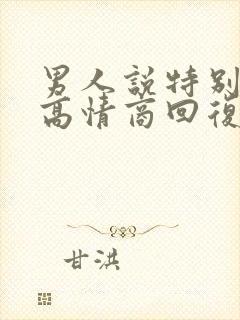 男人説特别
高情商回復
甘洪